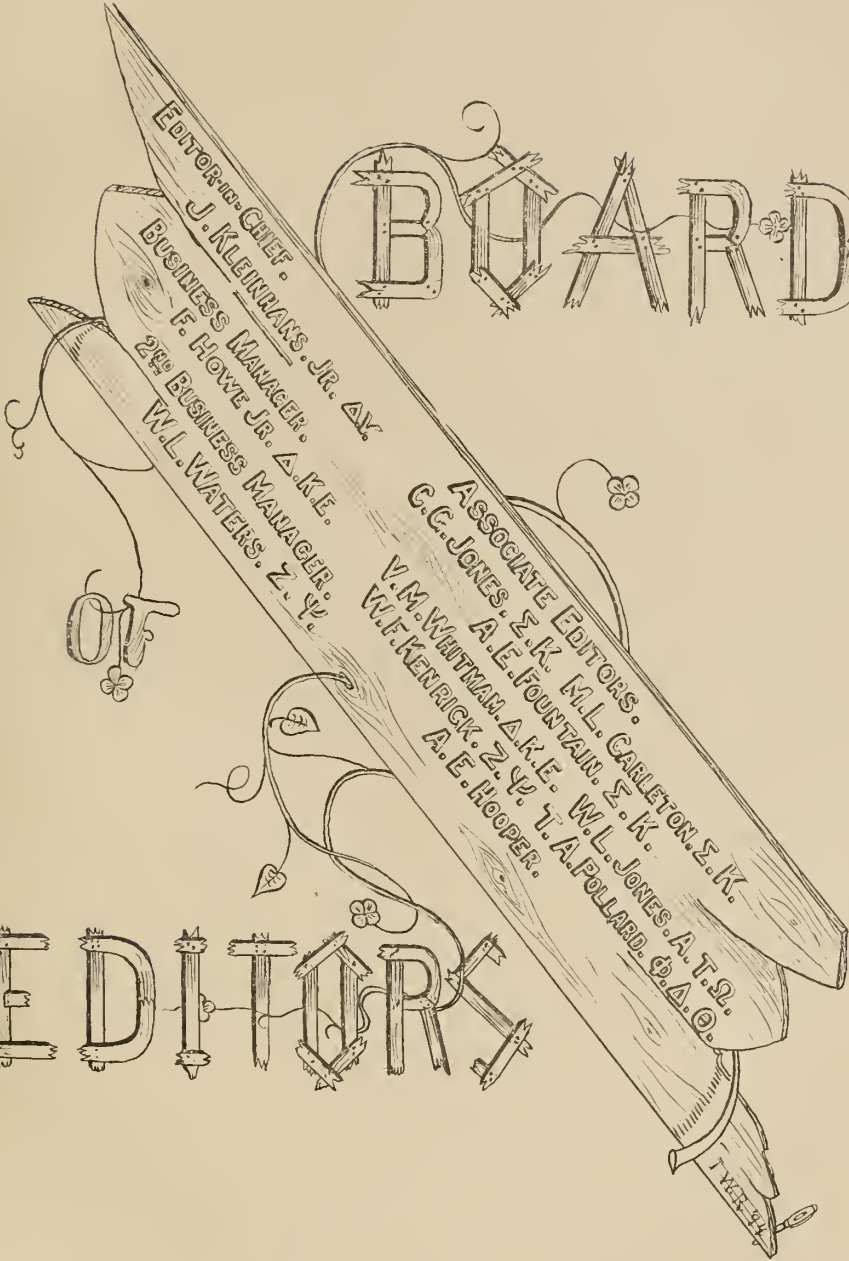 BOARD
OF
EDITORS
EDITOR-IN-CHIEF.
J. KLEINHANS. JR. Δ.Υ.
BUSINESS MANAGER.
F. HOWE JR. Δ.K.E.
2ND BUSINESS MANAGER.
W.L. WATERS. Z.Ψ.
ASSOCIATE EDITORS.
C.G. JONES. Σ.K. M.L. CARLETON. Σ.K.
A.E. FOUNTAIN. Σ.K.
V.M. WHITMAN. Δ.K.E. W.L. JONES. A.T.Ω.
W.F. KENRICK. Z.Ψ. T.A. POLLARD. Φ.Δ.Θ.
A.E. HOOPER.